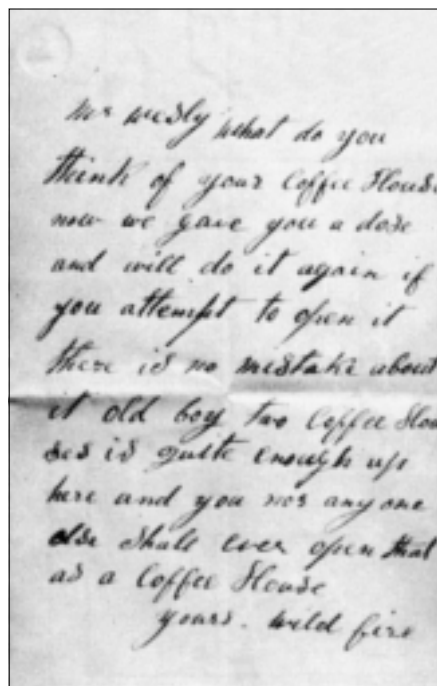 Mr Wesly what do you
think of your Coffee House
now we gave you a dose
and will do it again if
you attempt to open it
there is no mistake about
it old boy two Coffee Hou
ses is quite enough up
here and you nor any one
else shall ever open that
as a Coffee House
yours. wild fire